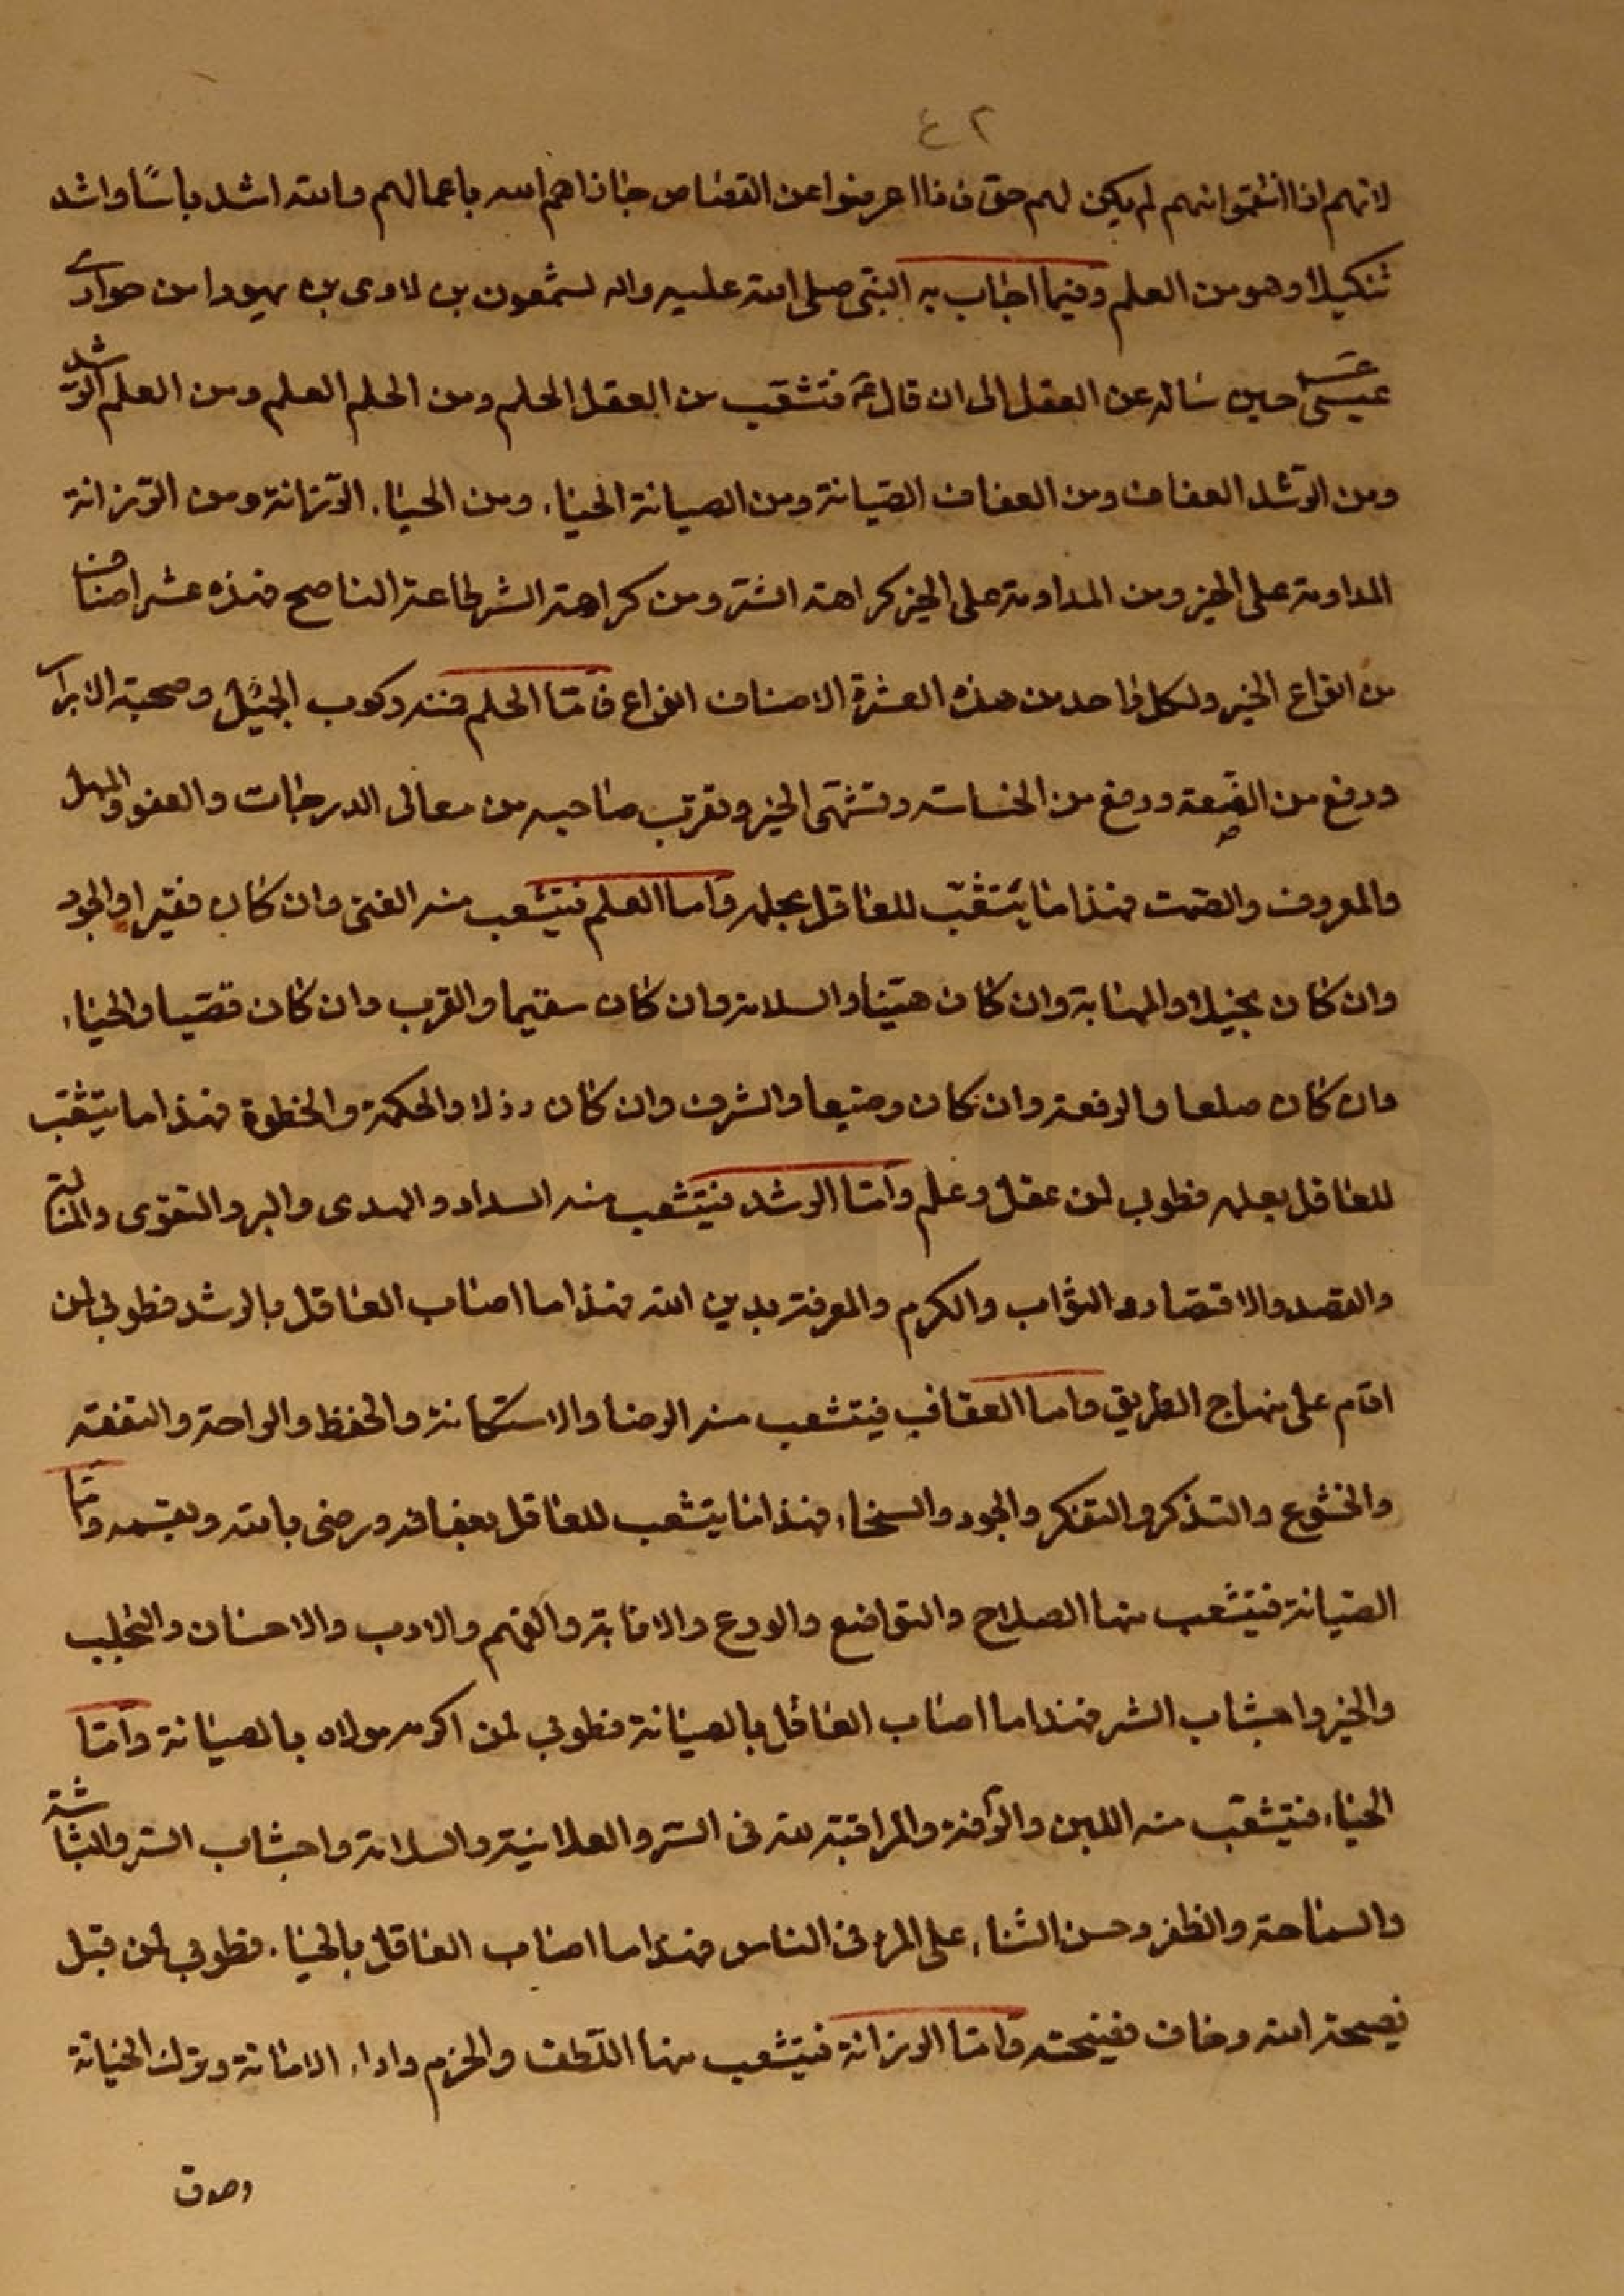 ٤٢
لانهم اذا انتقموا منهم لم يكن لهم حق فاذا اعرضوا عن القصاص جازاهم الله باعمالهم والله اشد باسًا واشد
تنكيلا وهو من العلم وفيما اجاب به النبي صلى الله عليه واله لشمعون بن لاوى بن يهودا من حوارى
عيسى حين ساله عن العقل الى ان قال فتشعّب من العقل الحلم ومن الحلم العلم ومن العلم الرّشد
ومن الرّشد العفاف ومن العفاف الصّيانة ومن الصيانة الحياء ومن الحياء الرّزانة ومن الرّزانة
المداومة على الخير ومن المداومة على الخير كراهة الشرّ ومن كراهة الشر طاعة الناصح فهذه عشر اصناف
من انواع الخير ولكل واحد من هذه العشرة الاصناف انواع فامّا الحلم فمنه ركوب الجميل وصحبة الابرار
ورفع من الضّعة ورفع من الخساسة وتشهّى الخير وتقرب صاحبه من معالى الدرجات والعفو والمهل
والمعروف والصّمت فهذا ما يتشعّب للعاقل بحلمه واما العلم فيتشعب منه الغنى وان كان فقيرا والجود
وان كان بخيلا والمهابة وان كان هيّنا والسلامة وان كان سقيما والقرب وان كان قصّيا والحياء
وان كان صلعا والرفعة وان كان وضيعا والشرف وان كان رذلا والحكمة والخطوة فهذا ما يتشعّب
للعاقل بعلمه فطوبى لمن عقل وعلم وامّا الرشد فيتشعب منه السداد والهدى والبر والتقوى والمنالة
والقصد والاقتصاد والثواب والكرم والمعرفة بدين الله فهذا ما اصاب العاقل بالرشد فطوبى لمن
اقام على منهاج الطريق واما العفاف فيتشعب منه الرضا والاستكانة والحفظ والراحة والتفقه
والخشوع والتذكر والتفكر والجود والسخاء فهذا ما يتشعب للعاقل بعفافه ورضى بالله وبقسمه وامّا
الصّيانة فيتشعب منها الصلاح والتواضع والورع والانابة والفهم والادب والاحسان والتحبّب
والخير واجتناب الشر فهذا ما اصاب العاقل بالصيانة فطوبى لمن اكرمه مولاه بالصيانة وامّا
الحياء فيتشعّب منه اللين والرّأفة والمراقبة لله فى السّر والعلانية والسلامة واجتناب الشر والبشاشة
والسماحة والظفر وحسن الثناء على المرء فى الناس فهذا ما اصاب العاقل بالحياء فطوبى لمن قبل
نصيحة الله وخاف فضيحته وامّا الرزانة فيتشعب منها اللّطف والحزم واداء الامانة وترك الخيانة
وصدق